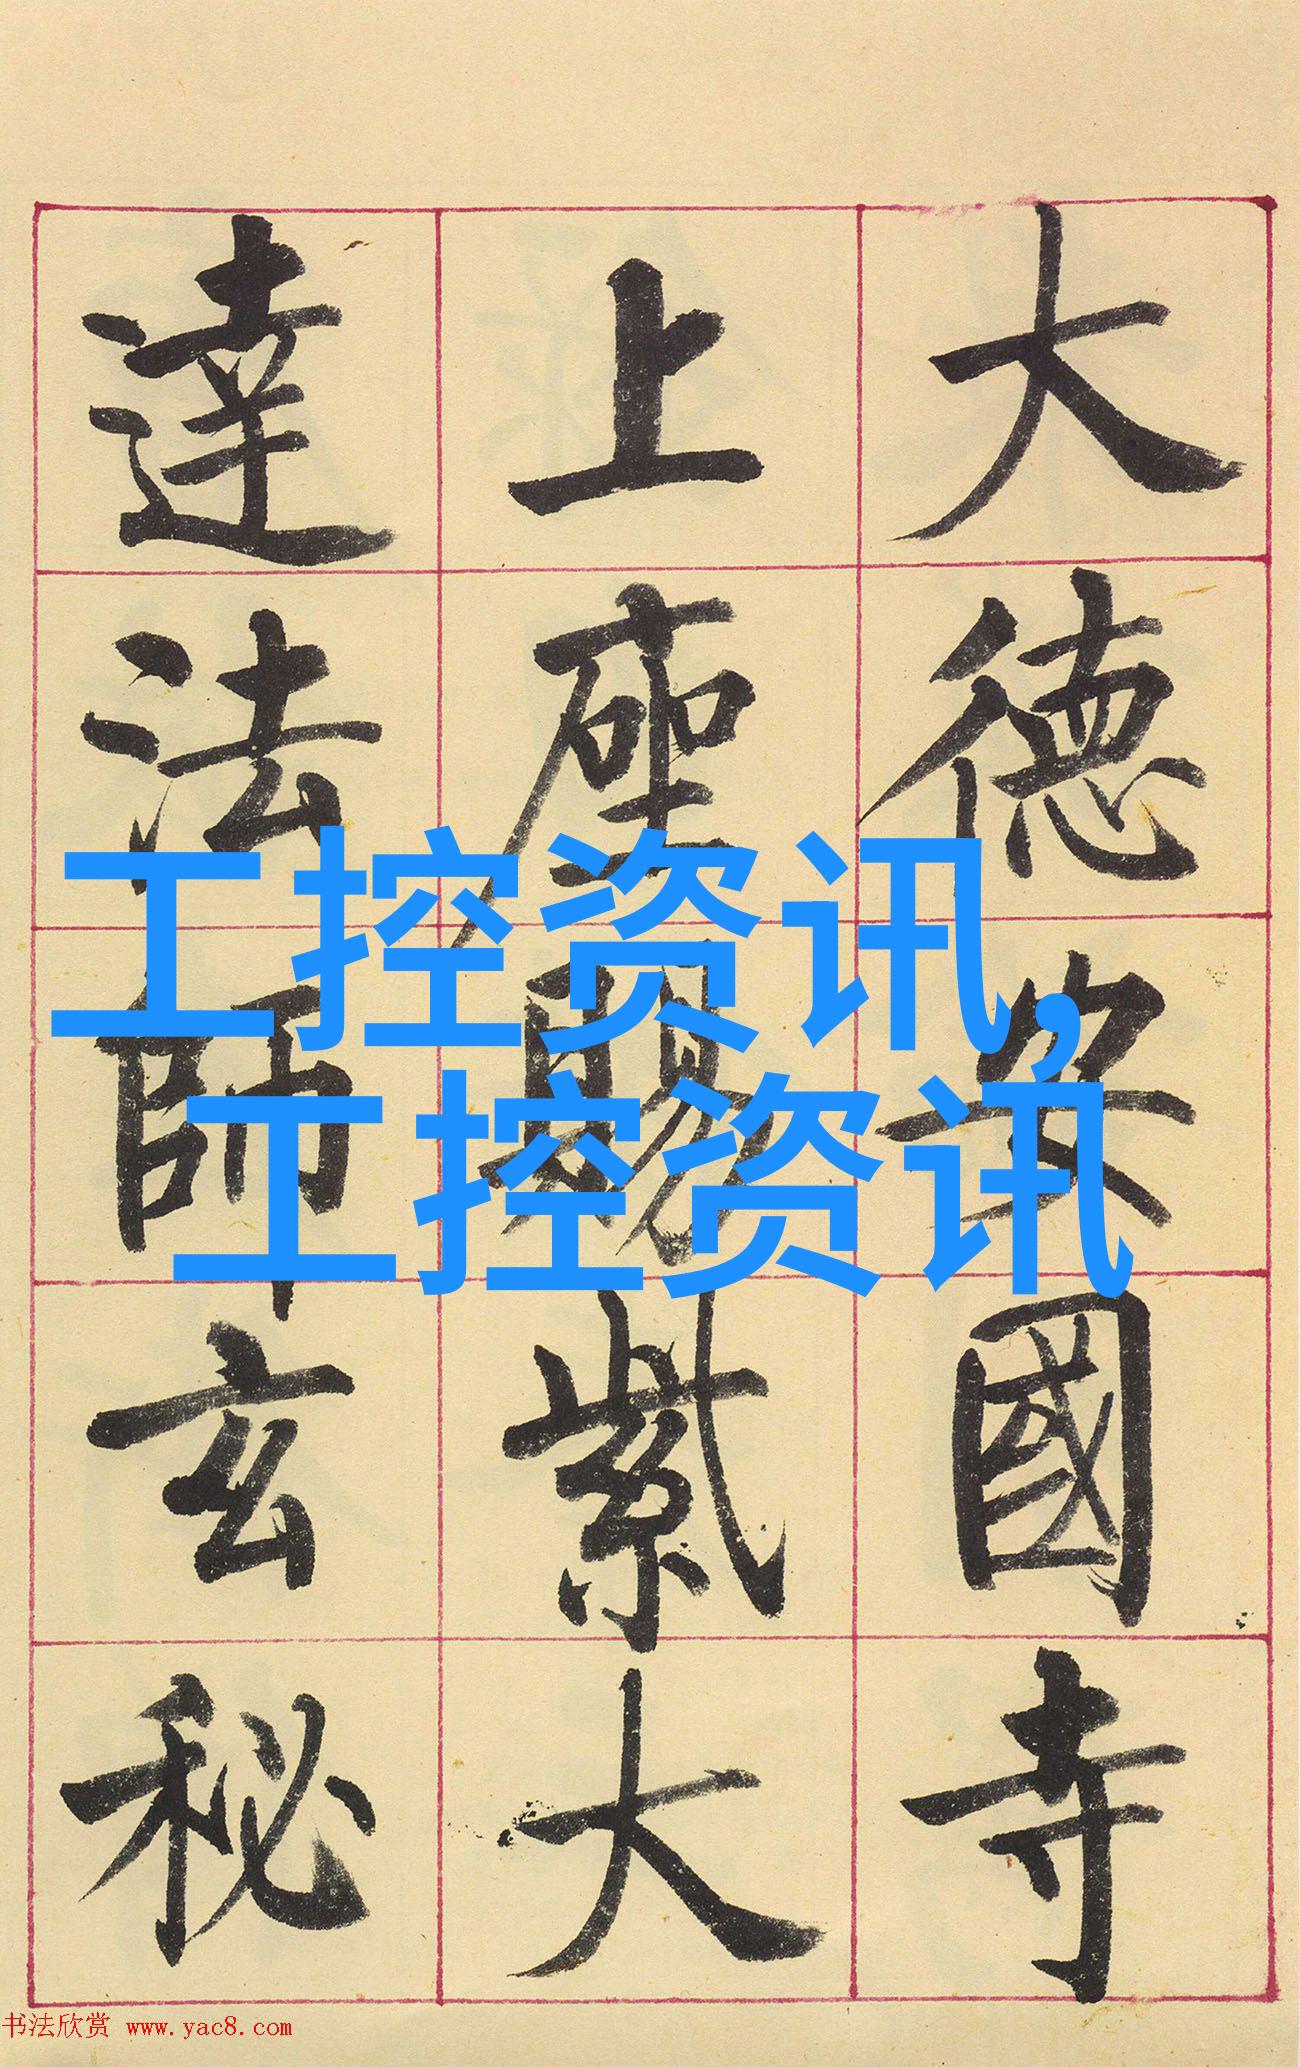 大德安國寺
上座賜紫大
達法師玄秘
工控资讯,
工控资讯
书法欣赏 www.yac8.com